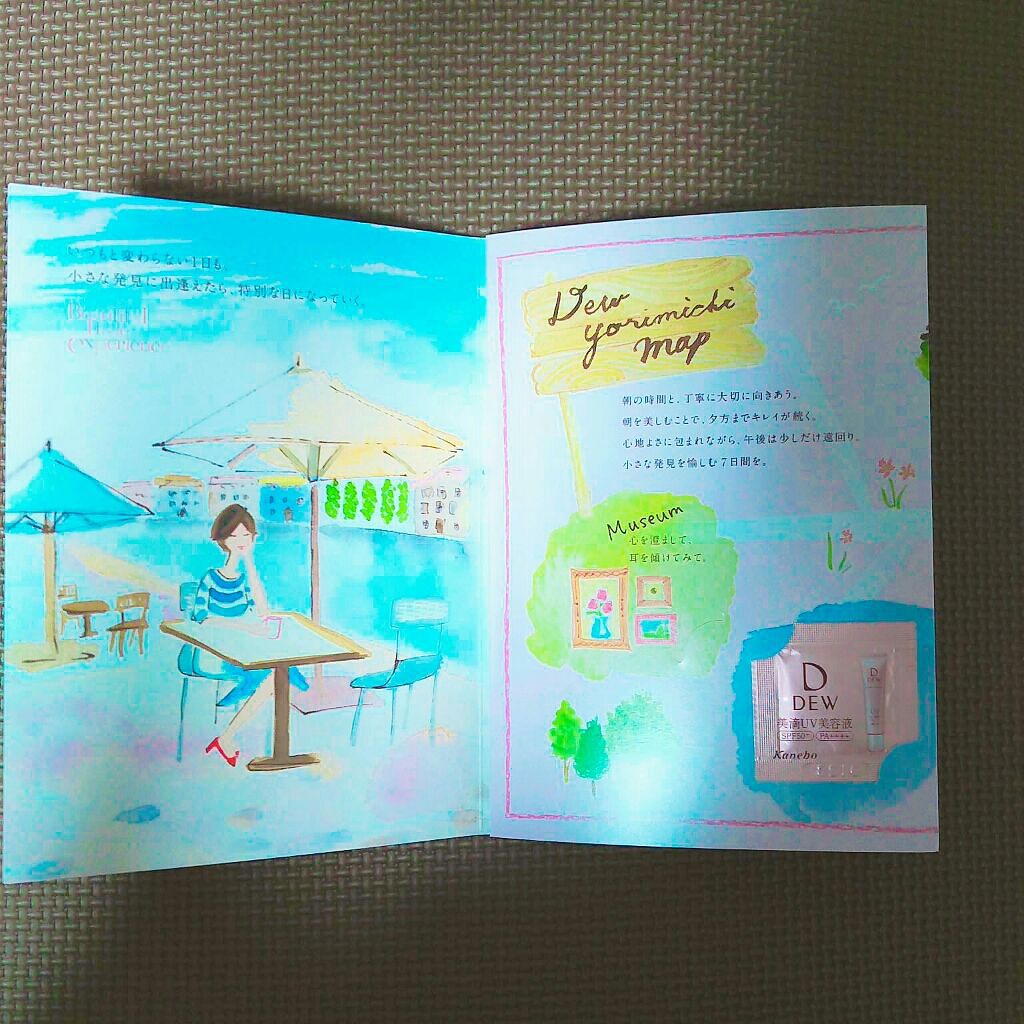 いつもと変わらない1日も、
小さな発見に出逢えたら、特別な日になっていく。
Beautiful
Dew
Experience
Dew
yorimichi
map
朝の時間と、丁寧に大切に向きあう。
朝を美しむことで、夕方までキレイが続く。
心地よさに包まれながら、午後は少しだけ遠回り。
小さな発見を愉しむ7日間を。
Museum
心を澄まして、
耳を傾けてみて。
D
DEW
美滴UV美容液
SPF50+ PA++++
Kanebo
D
DEW